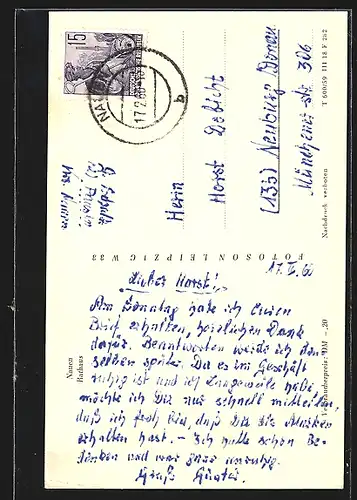 15
NAUEN
17.2.60
b
Herrn
Horst Debicht
(13b) Neuburg/Donau
Münchener Str. 306
T 600/59 III 18 F 282
Nachdruck verboten
FOTOSON LEIPZIG W 33
Nauen
Rathaus
Verbraucherpreis: DM -,20
17. II. 60
Lieber Horst!
Am Sonntag habe ich Euren
Brief erhalten, herzlichen Dank
dafür. Beantworten werde ich den-
selben später. Da es im Geschäft
ruhig ist und ich Langeweile habe,
möchte ich Dir nur schnell mitteilen,
daß ich froh bin, daß Du die Marken
erhalten hast. – Ich hatte schon Be-
denken und war ganz unruhig.
Gruß Günter